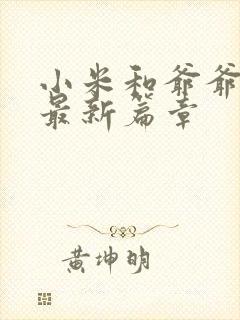 小米和爷爷
最新篇章
黄坤明